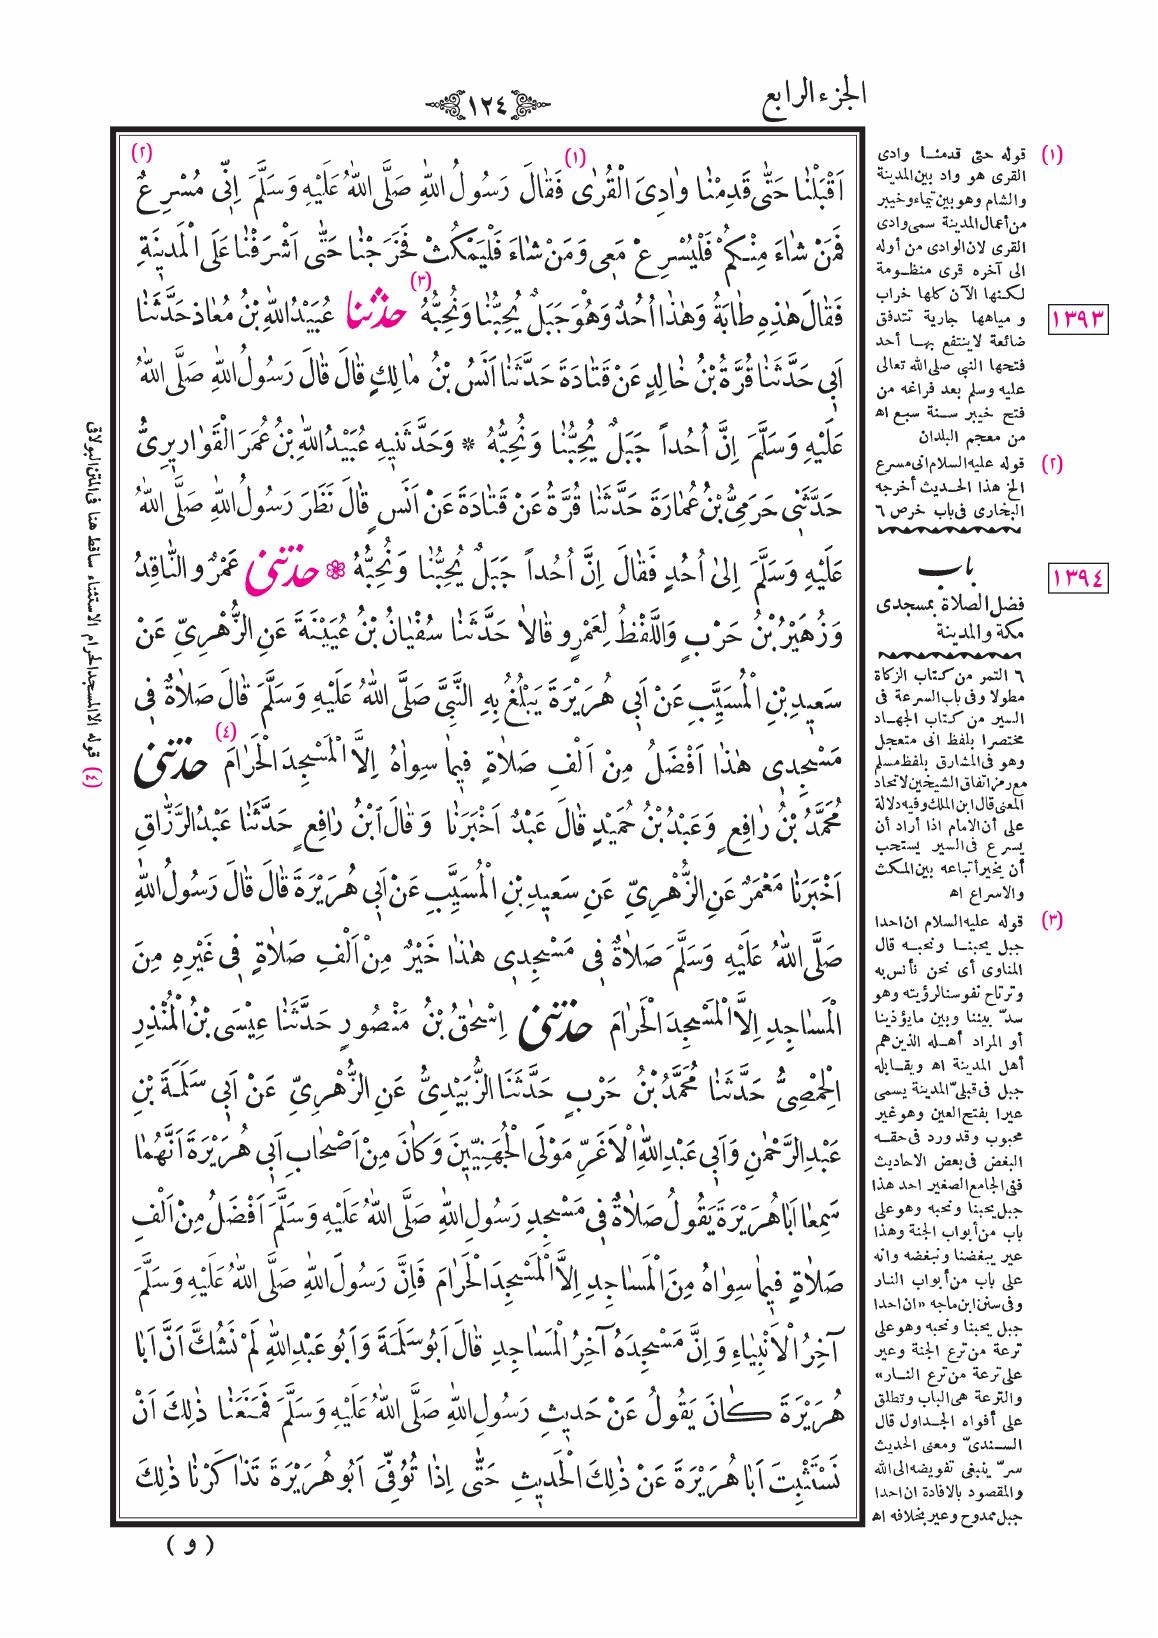 الجزء الرابع
١٢٤
اَقْبَلْنَا حَتّٰى قَدِمْنَا وَادِىَ الْقُرٰى (١) فَقَالَ رَسُولُ اللّٰهِ صَلَّى اللّٰهُ عَلَيْهِ وَسَلَّمَ اِنّى مُسْرِعٌ (٢)
فَمَنْ شَاءَ مِنْكُمْ فَلْيُسْرِعْ مَعِى وَمَنْ شَاءَ فَلْيَمْكُثْ فَخَرَجْنَا حَتّٰى اَشْرَفْنَا عَلَى الْمَدِينَةِ
فَقَالَ هٰذِهِ طَابَةُ وَهٰذَا اُحُدٌ وَهُوَ جَبَلٌ يُحِبُّنَا وَنُحِبُّهُ (٣) حدثنا عُبَيْدُ اللّٰهِ بْنُ مُعَاذٍ حَدَّثَنَا
اَبِى حَدَّثَنَا قُرَّةُ بْنُ خَالِدٍ عَنْ قَتَادَةَ حَدَّثَنَا اَنَسُ بْنُ مَالِكٍ قَالَ قَالَ رَسُولُ اللّٰهِ صَلَّى اللّٰهُ
عَلَيْهِ وَسَلَّمَ اِنَّ اُحُداً جَبَلٌ يُحِبُّنَا وَنُحِبُّهُ * وَحَدَّثَنِيهِ عُبَيْدُ اللّٰهِ بْنُ عُمَرَ الْقَوَارِيرِىُّ
حَدَّثَنِى حَرَمِىُّ بْنُ عُمَارَةَ حَدَّثَنَا قُرَّةُ عَنْ قَتَادَةَ عَنْ اَنَسٍ قَالَ نَظَرَ رَسُولُ اللّٰهِ صَلَّى اللّٰهُ
عَلَيْهِ وَسَلَّمَ اِلىٰ اُحُدٍ فَقَالَ اِنَّ اُحُداً جَبَلٌ يُحِبُّنَا وَنُحِبُّهُ * حدثنى عَمْرٌو النَّاقِدُ
وَزُهَيْرُ بْنُ حَرْبٍ وَاللَّفْظُ لِعَمْرٍو قَالَا حَدَّثَنَا سُفْيَانُ بْنُ عُيَيْنَةَ عَنِ الزُّهْرِىِّ عَنْ
سَعِيدِ بْنِ الْمُسَيَّبِ عَنْ اَبِى هُرَيْرَةَ يَبْلُغُ بِهِ النَّبِىَّ صَلَّى اللّٰهُ عَلَيْهِ وَسَلَّمَ قَالَ صَلَاةٌ فِى
مَسْجِدِى هٰذَا اَفْضَلُ مِنْ اَلْفِ صَلَاةٍ فِيمَا سِوَاهُ اِلَّا الْمَسْجِدَ الْحَرَامَ (٤) حدثنى
مُحَمَّدُ بْنُ رَافِعٍ وَعَبْدُ بْنُ حُمَيْدٍ قَالَ عَبْدٌ اَخْبَرَنَا وَقَالَ ابْنُ رَافِعٍ حَدَّثَنَا عَبْدُ الرَّزَّاقِ
اَخْبَرَنَا مَعْمَرٌ عَنِ الزُّهْرِىِّ عَنِ سَعِيدِ بْنِ الْمُسَيَّبِ عَنْ اَبِى هُرَيْرَةَ قَالَ قَالَ رَسُولُ اللّٰهِ
صَلَّى اللّٰهُ عَلَيْهِ وَسَلَّمَ صَلَاةٌ فِى مَسْجِدِى هٰذَا خَيْرٌ مِنْ اَلْفِ صَلَاةٍ فِى غَيْرِهِ مِنَ
الْمَسَاجِدِ اِلَّا الْمَسْجِدَ الْحَرَامَ حدثنى اِسْحٰقُ بْنُ مَنْصُورٍ حَدَّثَنَا عِيسَى بْنُ الْمُنْذِرِ
الْحِمْصِىُّ حَدَّثَنَا مُحَمَّدُ بْنُ حَرْبٍ حَدَّثَنَا الزُّبَيْدِىُّ عَنِ الزُّهْرِىِّ عَنْ اَبِى سَلَمَةَ بْنِ
عَبْدِ الرَّحْمٰنِ وَاَبِى عَبْدِ اللّٰهِ الْاَغَرِّ مَوْلَى الْجُهَنِيّينَ وَكَانَ مِنْ اَصْحَابِ اَبِى هُرَيْرَةَ اَنَّهُمَا
سَمِعَا اَبَا هُرَيْرَةَ يَقُولُ صَلَاةٌ فِى مَسْجِدِ رَسُولِ اللّٰهِ صَلَّى اللّٰهُ عَلَيْهِ وَسَلَّمَ اَفْضَلُ مِنْ اَلْفِ
صَلَاةٍ فِيمَا سِوَاهُ مِنَ الْمَسَاجِدِ اِلَّا الْمَسْجِدَ الْحَرَامَ فَاِنَّ رَسُولَ اللّٰهِ صَلَّى اللّٰهُ عَلَيْهِ وَسَلَّمَ
آخِرُ الْاَنْبِيَاءِ وَاِنَّ مَسْجِدَهُ آخِرُ الْمَسَاجِدِ قَالَ اَبُو سَلَمَةَ وَاَبُو عَبْدِ اللّٰهِ لَمْ نَشُكَّ اَنَّ اَبَا
هُرَيْرَةَ كَانَ يَقُولُ عَنْ حَدِيثِ رَسُولِ اللّٰهِ صَلَّى اللّٰهُ عَلَيْهِ وَسَلَّمَ فَمَنَعَنَا ذٰلِكَ اَنْ
نَسْتَثْبِتَ اَبَا هُرَيْرَةَ عَنْ ذٰلِكَ الْحَدِيثِ حَتّٰى اِذَا تُوُفِّىَ اَبُو هُرَيْرَةَ تَذَاكَرْنَا ذٰلِكَ
( و )
(١) قوله حتى قدمنا وادى
القرى هو واد بين المدينة
والشام وهو بين تيماء وخيبر
من أعمال المدينة سمى وادى
القرى لان الوادى من أوله
الى آخره قرى منظومة
لكنها الآن كلها خراب
و مياهها جارية تتدفق
ضائعة لا ينتفع بها أحد
فتحها النبي صلى الله تعالى
عليه وسلم بعد فراغه من
فتح خيبر سنة سبع اھ
من معجم البلدان
(٢) قوله عليه السلام انى مسرع
الخ هذا الحديث أخرجه
البخارى فى باب خرص ٦
١٣٩٣
باب
فضل الصلاة بمسجدى
مكة والمدينة
١٣٩٤
٦ التمر من كتاب الزكاة
مطولا وفى باب السرعة فى
السير من كتاب الجهاد
مختصرا بلفظ انى متعجل
وهو فى المشارق بلفظ مسلم
مع رمز اتفاق الشيخين لاتحاد
المعنى قال ابن الملك وفيه دلالة
على أن الامام اذا أراد أن
يسرع فى السير يستحب
أن يخير أتباعه بين المكث
والاسراع اھ
(٣) قوله عليه السلام ان احدا
جبل يحبنا ونحبه قال
المناوى أى نحن نأنس به
وترتاح نفوسنا لرؤيته وهو
سدّ بيننا وبين ما يؤذينا
أو المراد أهله الذين هم
أهل المدينة اھ وبقابله
جبل فى قبلىّ المدينة يسمى
عيرا بفتح العين وهو غير
محبوب وقد ورد فى حقه
البغض فى بعض الاحاديث
ففى الجامع الصغير احد هذا
جبل يحبنا ونحبه وهو على
باب من أبواب الجنة وهذا
عير يبغضنا ونبغضه وانه
على باب من أبواب النار
وفى سنن ابن ماجه «ان احدا
جبل يحبنا ونحبه وهو على
ترعة من ترع الجنة وعير
على ترعة من ترع النار»
والترعة هى الباب وتطلق
على أفواه الجداول قال
السندىّ ومعنى الحديث
سرّ ينبغى تفويضه الى الله
والمقصود بالافادة ان احدا
جبل ممدوح وعير بخلافه اھ
(٤) قوله الا المسجد الحرام الاستثناء ساقط هنا فى المتن البولاقى